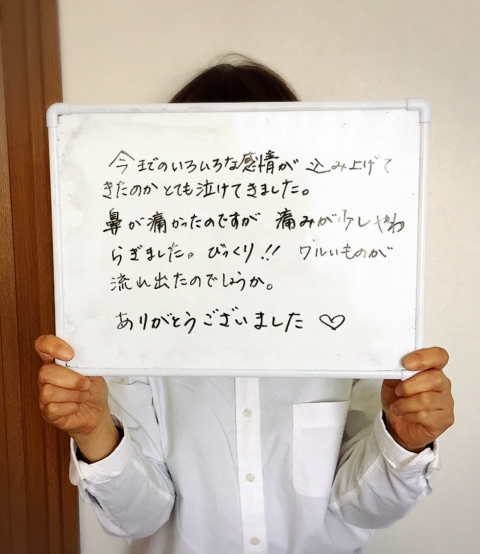 今までのいろいろな感情が 込み上げて
きたのか とても泣けてきました。
鼻が痛かったのですが 痛みが少しやわ
らぎました。びっくり!! ワルいものが
流れ出たのでしょうか。
ありがとうございました ♡